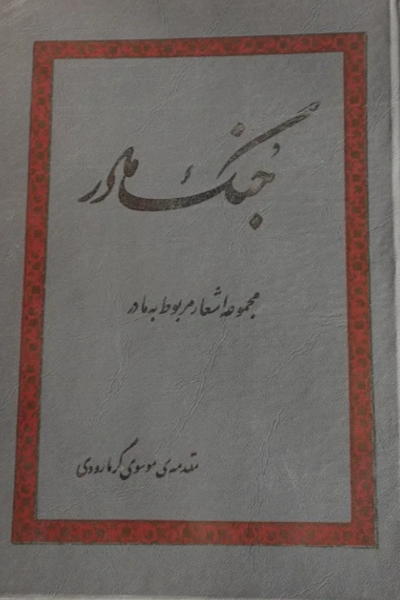 جُنگ مادر
مجموعه اشعار مربوط به مادر
مقدمه‌ی موسوی گرمارودی